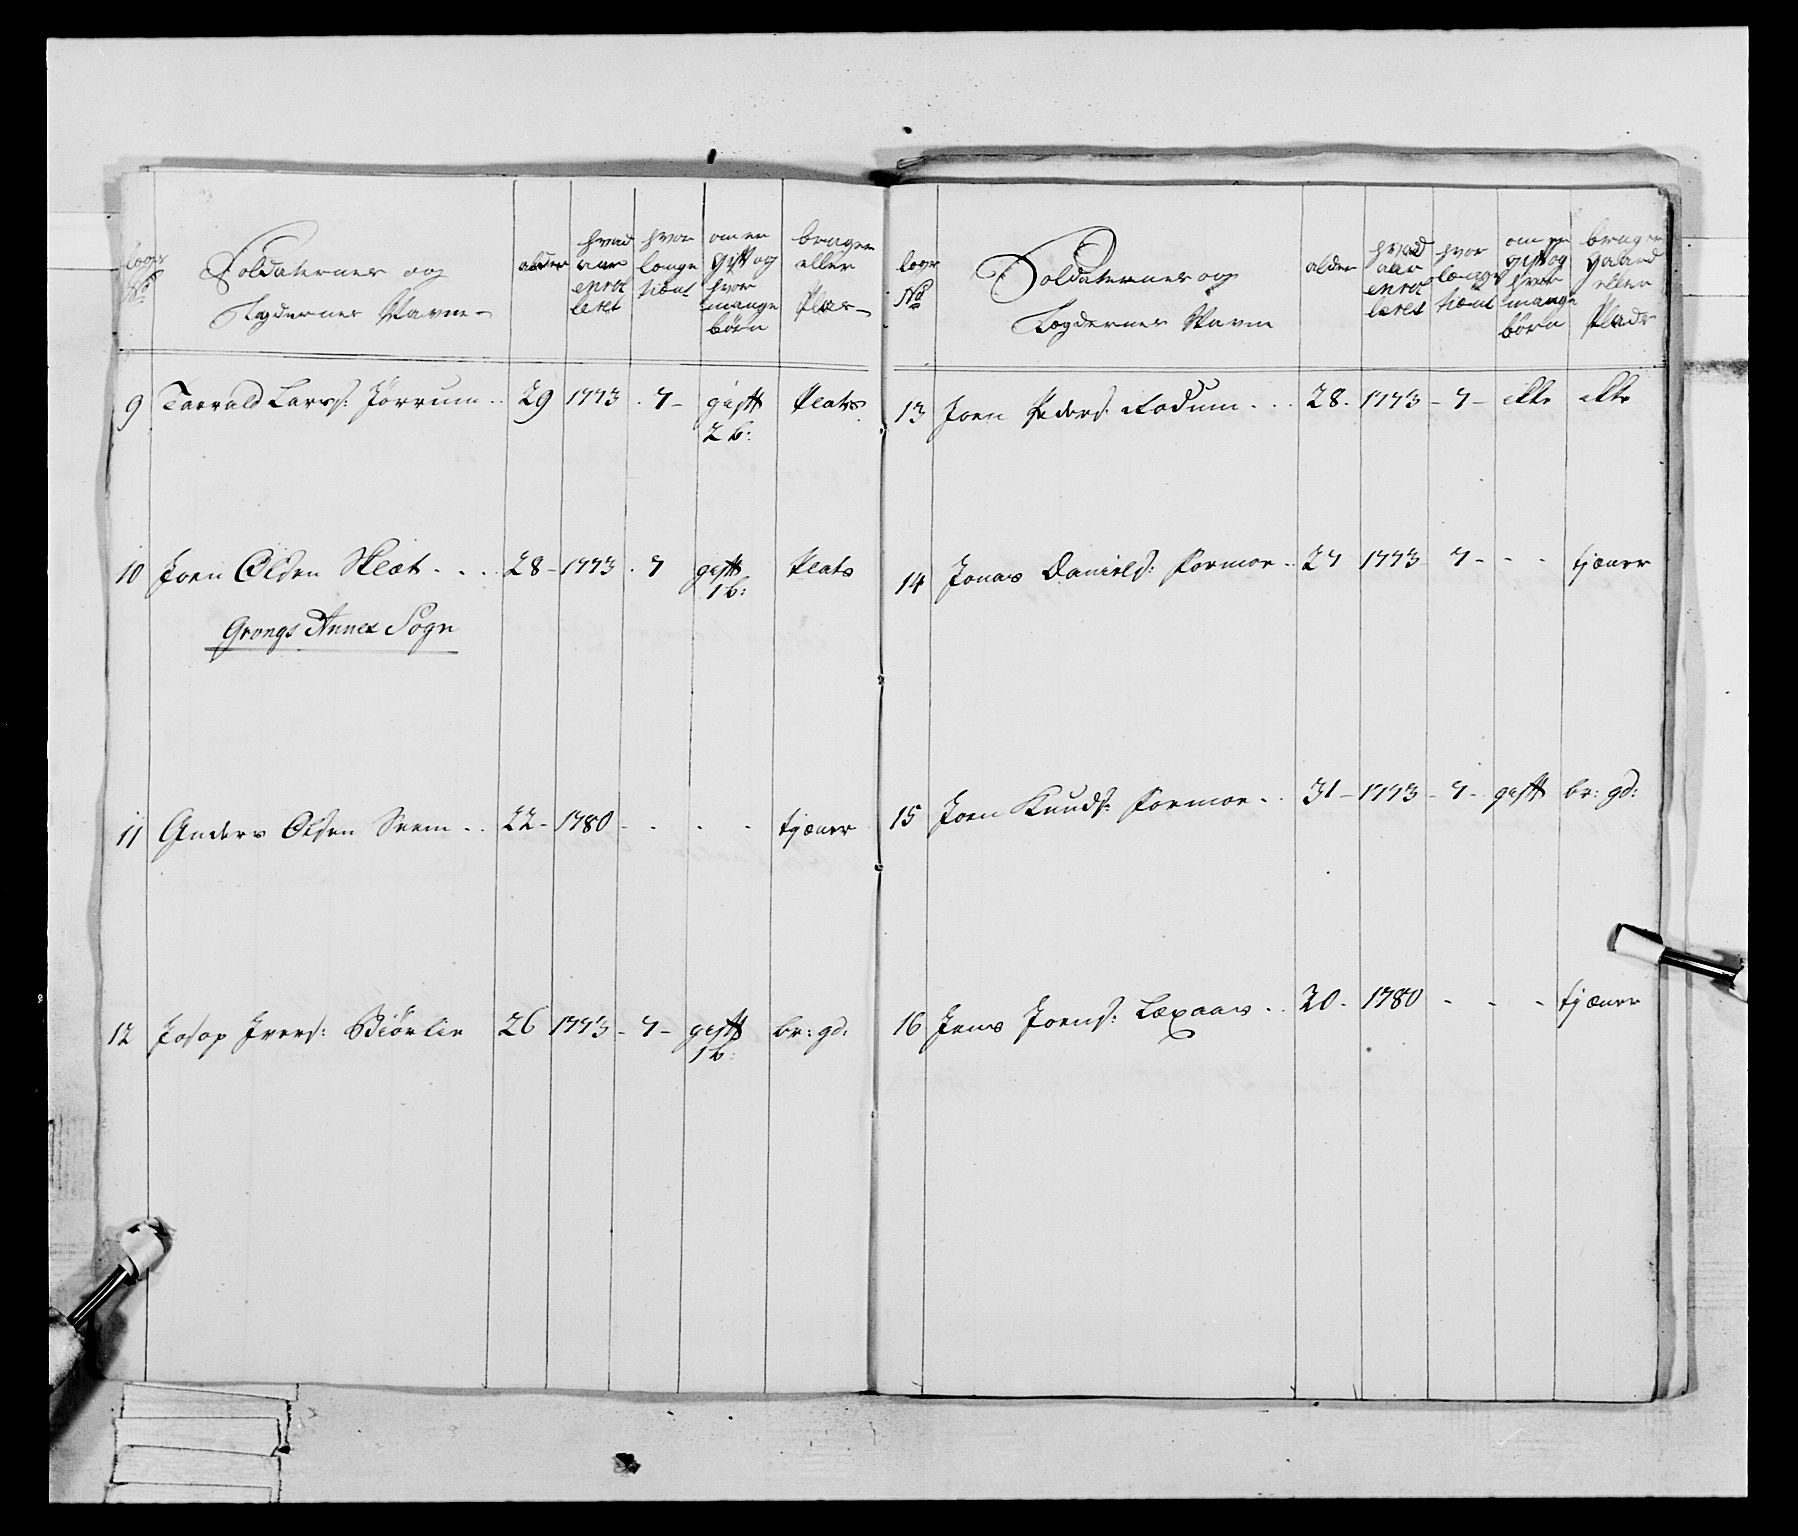 Soldaternes og
Lægdernes Navne
alder
hvad aar enrolleret
hvor længe tient
om er gift og hvor mange børn
bruger eller Plas
9 Tarald Lars: Jørrum 29 1773 7 gift Plats
2 b:
10 Joen Olsen Klæt 28 1773 7 gift Plats
1 b:
Grongs Annex Sogn
11 Anders Olsen Svem 22 1780 tjæner
12 Josop Ivers: Biørlie 26 1773 7 gift br: gd:
1 b:
lægs No
Soldaternes og
Lægdernes Navne
alder
hvad aar enrolleret
hvor længe tiænt
om er gift og hvor mange børn
bruger gaard eller Plads
13 Joen Peders: Rodum 28 1773 7 ikke ikke
14 Jonas Daniels: Formoe 27 1773 7 tjæner
15 Joen Knuds: Formoe 31 1773 7 gift br: gd:
16 Jens Joens: Læxaas 20 1780 tjæner